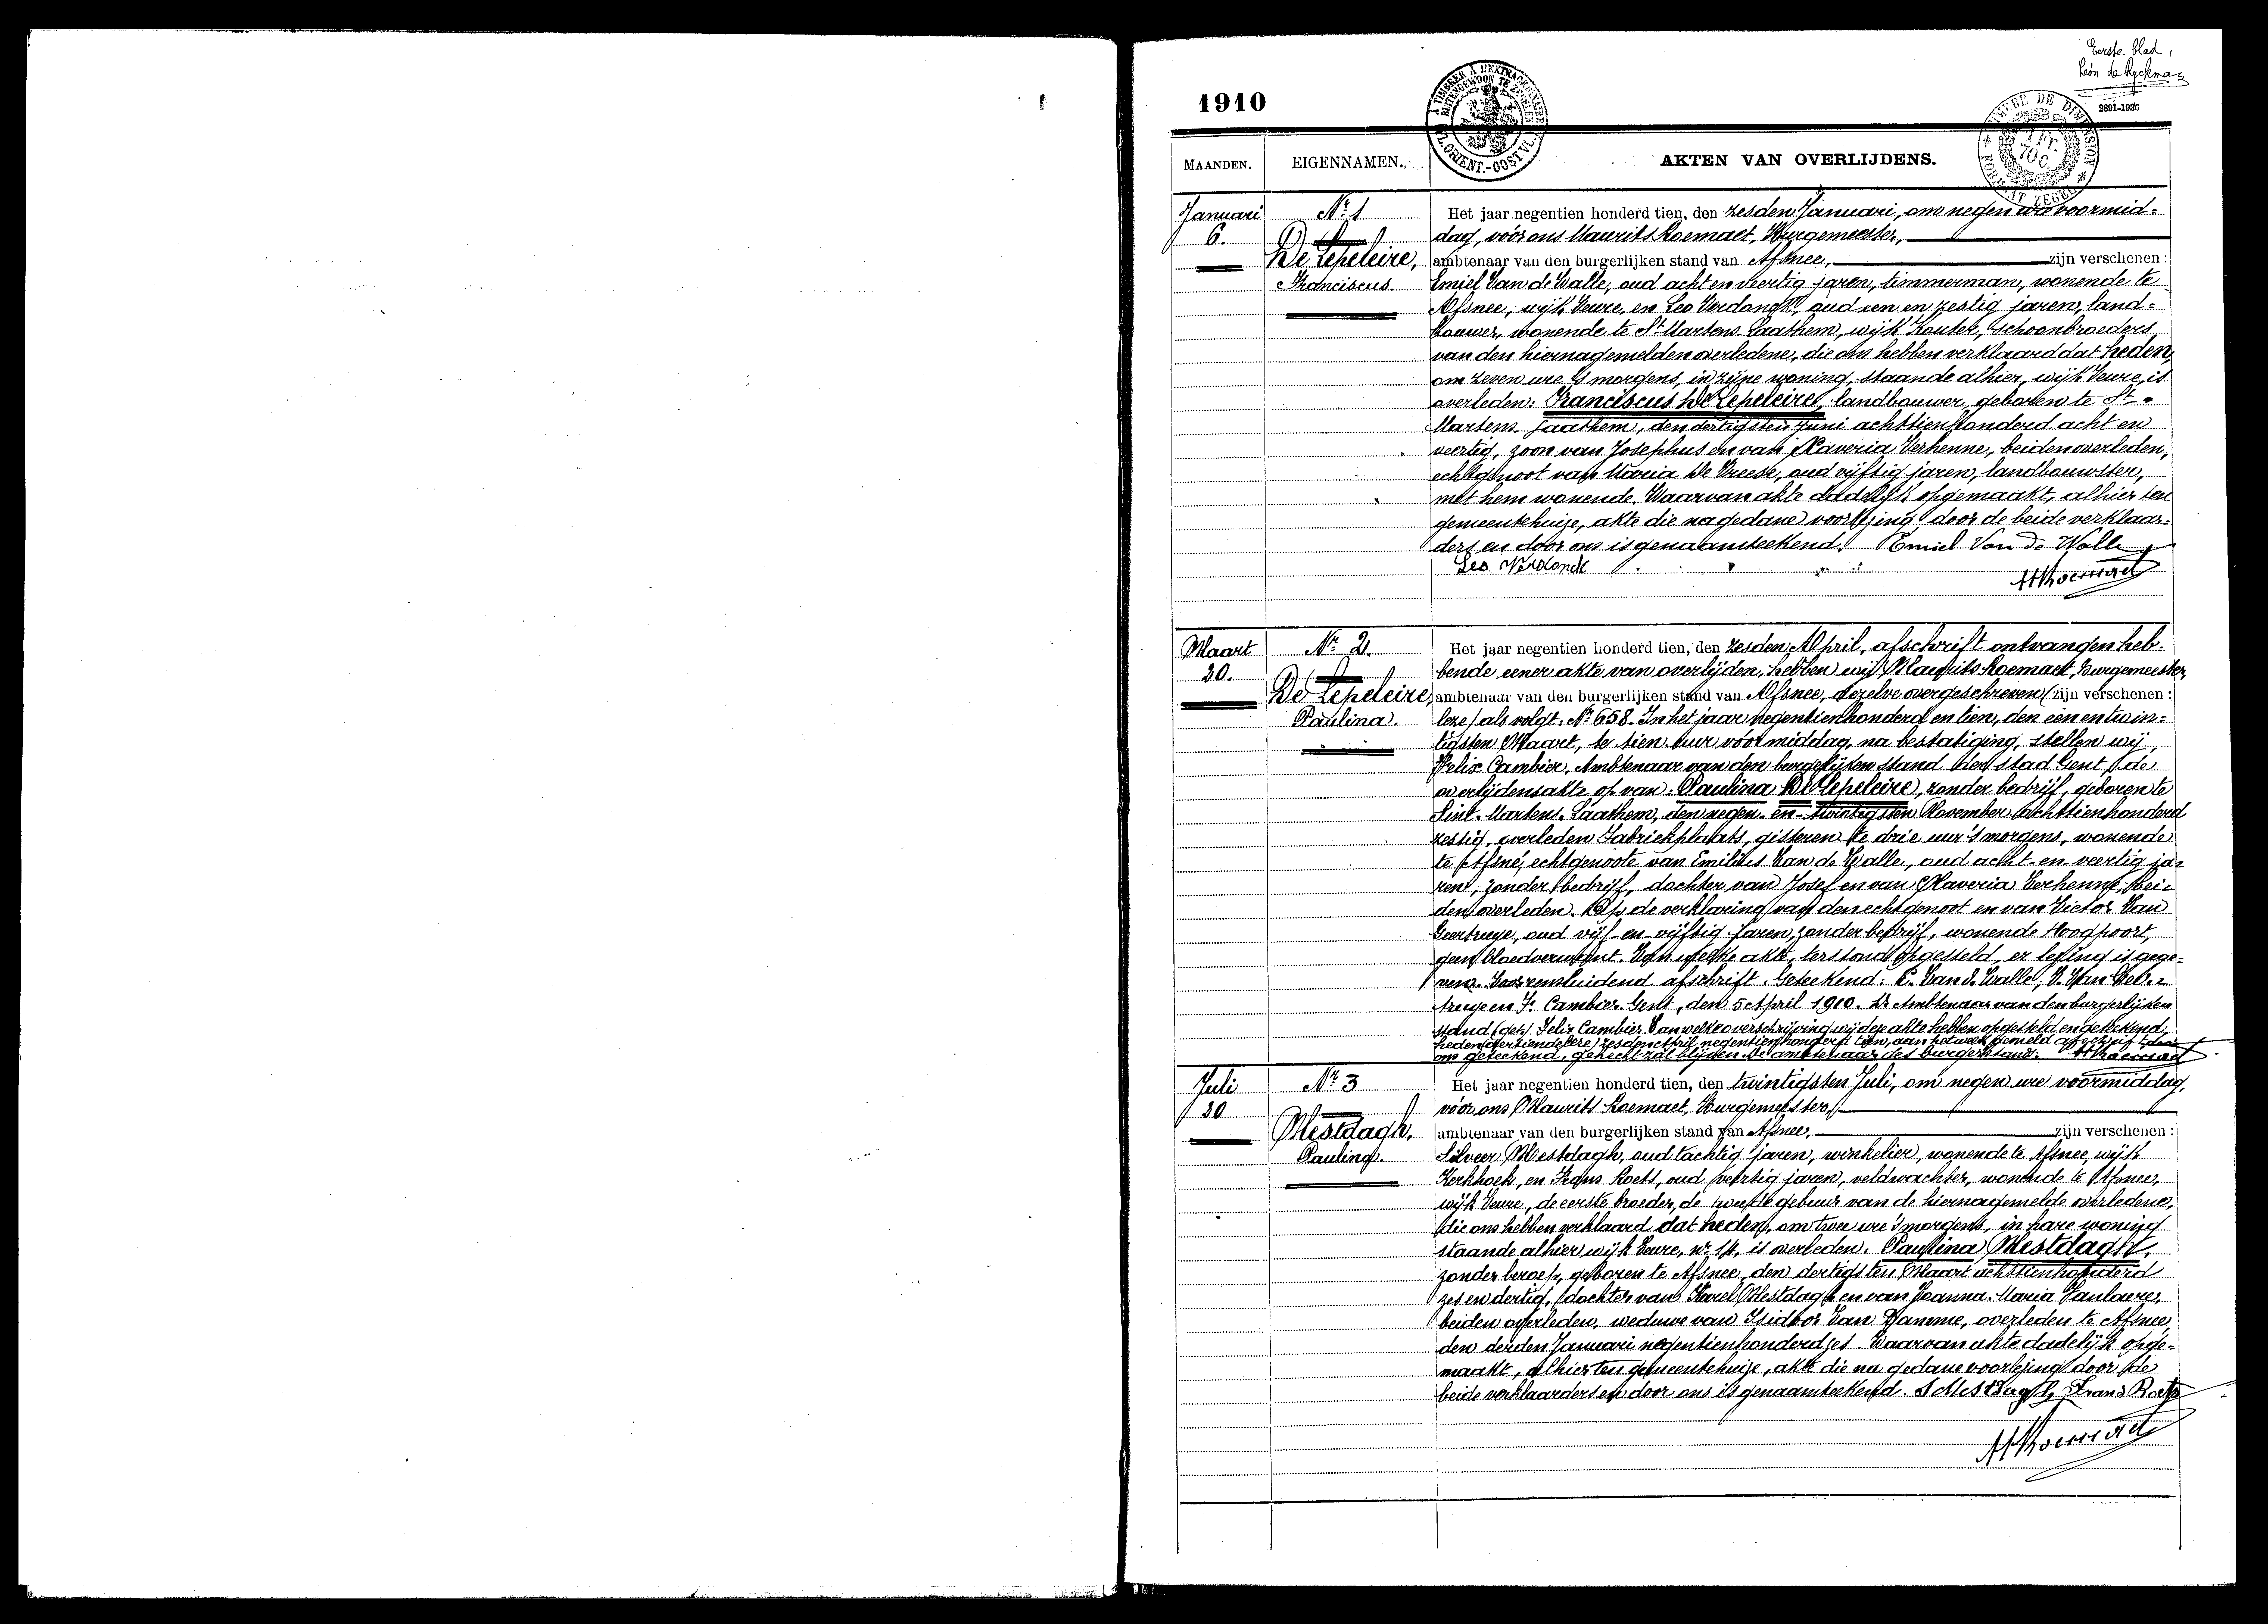 Eerste blad,
Léon de Ryckman
2891-1936
1910
À TIMBRER À L'EXTRAORDINAIRE
BUITENGEWOON TE ZEGELEN
FL. ORIENT.-OOST VL.
TIMBRE DE DIMENSION
1 FR. 70 C.
FORMAAT ZEGEL
MAANDEN.
EIGENNAMEN.
AKTEN VAN OVERLIJDENS.
Januari
6.
Nr. 1
De Lepeleire,
Franciscus.
Het jaar negentien honderd tien, den zesden Januari, om negen ure voormid-
dag, vóór ons Maurits Roemaet, Burgemeester,
ambtenaar van den burgerlijken stand van Afsnee, zijn verschenen :
Emiel Van de Walle, oud acht en veertig jaren, timmerman, wonende te
Afsnee, wijk Veure, en Leo Verdonck, oud een en zestig jaren, land-
bouwer, wonende te St Martens Laathem, wijk Kouter, schoonbroeders
van den hiernagemelden overledene, die ons hebben verklaard dat heden,
om zeven ure 's morgens, in zijne woning, staande alhier, wijk Veure, is
overleden: Franciscus De Lepeleire, landbouwer, geboren te St-
Martens Laathem, den dertigsten Juni achttien honderd acht en
veertig, zoon van Josephus en van Xaveria Verhenne, beiden overleden,
echtgenoot van Maria De Vreese, oud vijftig jaren, landbouwster,
met hem wonende. Waarvan akte dadelijk opgemaakt, alhier ten
gemeentehuize, akte die na gedane voorlezing door de beide verklaar-
ders en door ons is genaamteekend. Emiel Van De Walle
Leo Verdonck
MRoemaet
Maart
20.
Nr. 2.
De Lepeleire,
Paulina.
Het jaar negentien honderd tien, den zesden April, afschrift ontvangen heb-
bende eener akte van overlijden, hebben wij Maurits Roemaet, Burgemeester,
ambtenaar van den burgerlijken stand van Afsnee, dezelve overgeschreven (zijn verschenen :
leze) als volgt: Nr 658. In het jaar negentienhonderd en tien, den een en twin-
tigsten Maart, te tien uur vóórmiddag, na bestatiging, stellen wij,
Felix Cambier, Ambtenaar van den burgerlijken stand der stad Gent, de
overlijdensakte op van: Paulina De Lepeleire, zonder bedrijf, geboren te
Sint-Martens-Laathem, den negen-en-twintigsten November achttienhonderd
zestig, overleden Fabriekplaats, gisteren te drie uur 's morgens, wonende
te Afsné, echtgenoote van Emilius Van de Walle, oud acht-en-veertig ja-
ren, zonder bedrijf, dochter van Josef en van Xaveria Verhenne, bei-
den overleden. Op de verklaring van den echtgenoot en van Victor Van
Geertruye, oud vijf-en-vijftig jaren, zonder bedrijf, wonende Hoogpoort,
geen bloedverwant. Van welke akte, terstond opgesteld, er lezing is gege-
ven. Voor eensluidend afschrift. Geteekend: E. Van de Walle, V. Van Geer-
truye en F. Cambier. Gent, den 5 April 1910. De Ambtenaar van den burgerlijken
stand (get.) Felix Cambier. Van welke overschrijving wij deze akte hebben opgesteld en geteekend,
heden zesden April negentienhonderd tien, aan hetwelk gemeld afschrift door
ons geteekend, gehecht zal blijven. De ambtenaar des burgerstands: MRoemaet
Juli
20
Nr 3
Mestdagh,
Paulina.
Het jaar negentien honderd tien, den twintigsten Juli, om negen ure voormiddag,
vóór ons Maurits Roemaet, Burgemeester,
ambtenaar van den burgerlijken stand van Afsnee, zijn verschenen :
Silveer Mestdagh, oud tachtig jaren, winkelier, wonende te Afsnee, wijk
Kerkhoek, en Frans Roets, oud veertig jaren, veldwachter, wonende te Afsnee,
wijk Veure, de eerste broeder, de tweede gebuur van de hiernagemelde overledene,
die ons hebben verklaard dat heden, om twee ure 's morgens, in hare woning
staande alhier wijk Veure, nr 14, is overleden: Paulina Mestdagh,
zonder beroep, geboren te Afsnee, den dertigsten Maart achttienhonderd
zes en dertig, dochter van Karel Mestdagh en van Joanna-Maria Vanlaere,
beiden overleden, weduwe van Isidoor Van Damme, overleden te Afsnee,
den derden Januari negentienhonderd zes. Waarvan akte dadelijk opge-
maakt, alhier ten gemeentehuize, akte die na gedane voorlezing door de
beide verklaarders en door ons is genaamteekend. S Mestdagh Frans Roets
MRoemaet